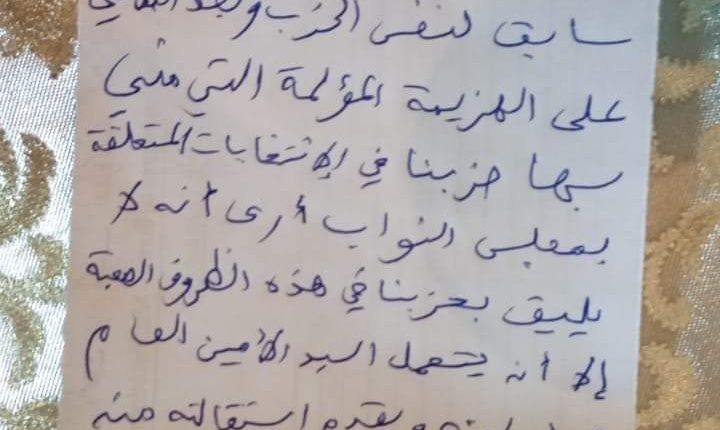 سابق لنفس الحزب وبعد
على الهزيمة المؤلمة التي مني
بها حزبنا في الإنتخابات المتعلقة
بمجلس النواب أرى أنه لا
يليق بحزبنا في هذه الظروف الصعبة
إلا أن يتحمل السيد الأمين العام
ويقدم استقالته منه